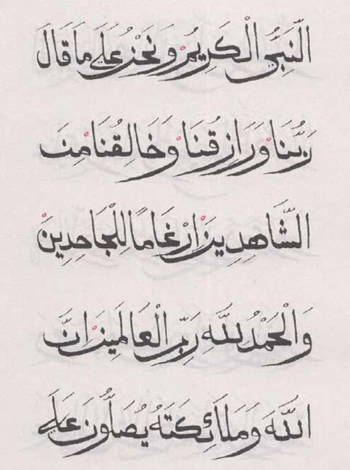 النَّبِيُّ الْكَرِيمُ وَنَحْنُ عَلَى مَا قَالَ
رَبُّنَا وَرَازِقُنَا وَخَالِقُنَا مِنَ
الشَّاهِدِينَ اِرْغَامًا لِلْجَاحِدِينَ
وَالْحَمْدُ لِلَّهِ رَبِّ الْعَالَمِينَ اِنَّ
اللَّهَ وَمَلَائِكَتَهُ يُصَلُّونَ عَلَى